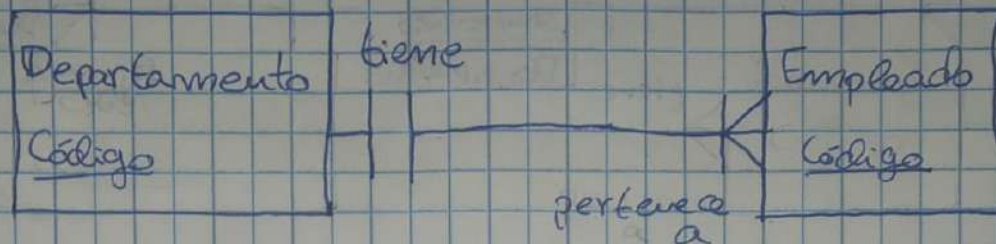 Departamento
Código
tiene
pertenece
a
Empleado
Código